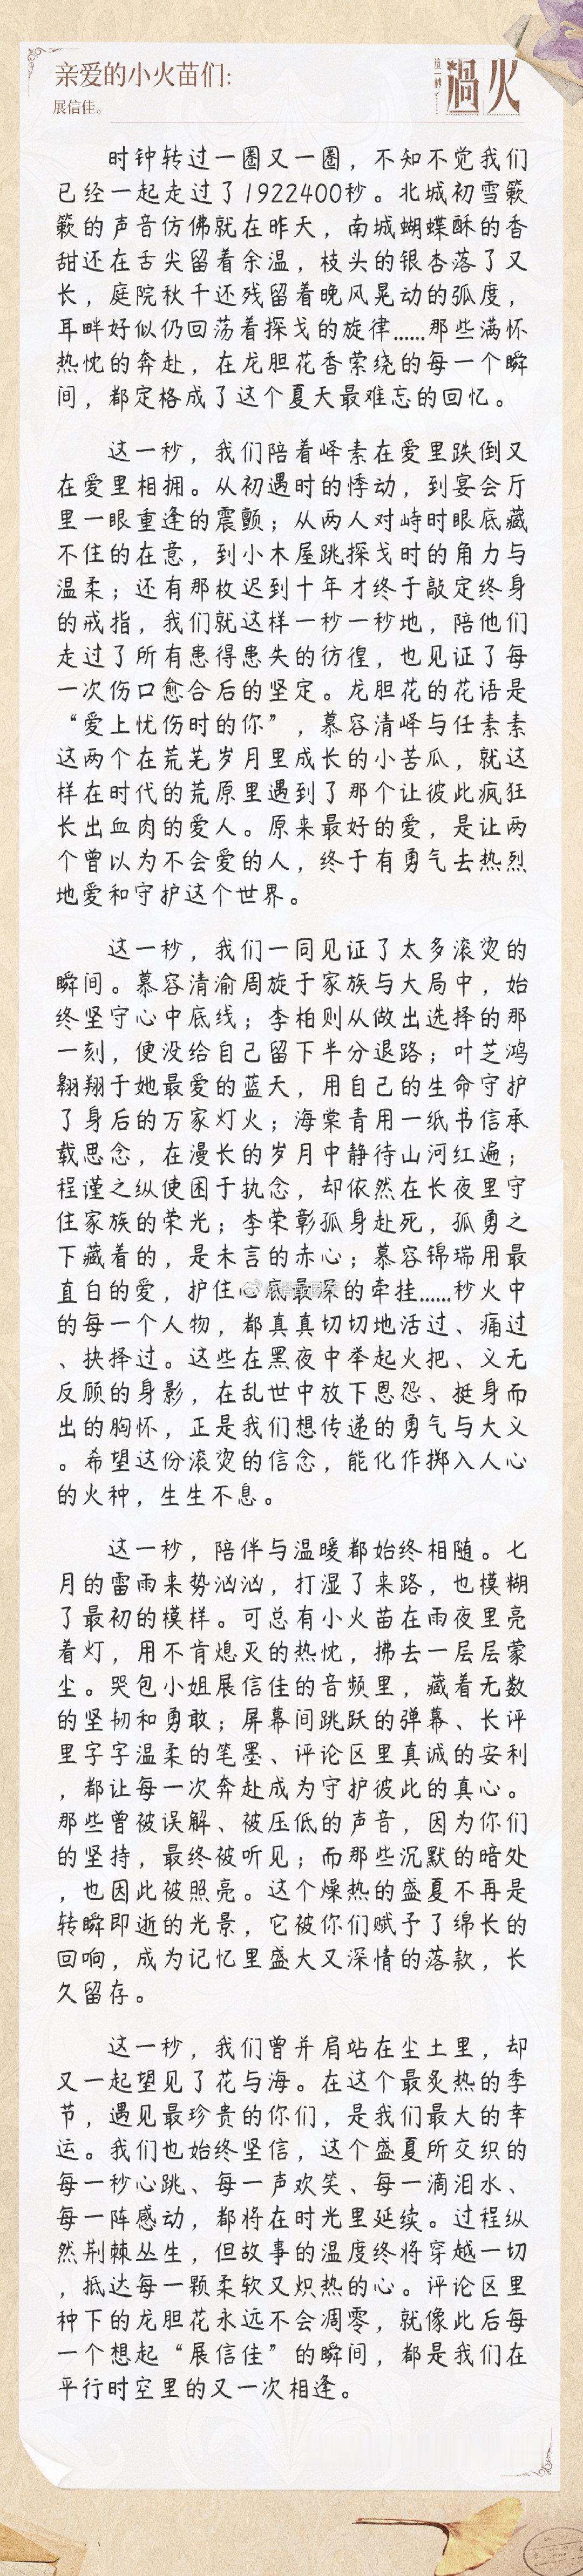 亲爱的小火苗们:
展信佳。
这一秒
過火
时钟转过一圈又一圈，不知不觉我们
已经一起走过了1922400秒。北城初雪簌
簌的声音仿佛就在昨天，南城蝴蝶酥的香
甜还在舌尖留着余温，枝头的银杏落了又
长，庭院秋千还残留着晚风晃动的弧度，
耳畔好似仍回荡着探戈的旋律……那些满怀
热忱的奔赴，在龙胆花香萦绕的每一个瞬
间，都定格成了这个夏天最难忘的回忆。
这一秒，我们陪着峰素在爱里跌倒又
在爱里相拥。从初遇时的悸动，到宴会厅
里一眼重逢的震颤；从两人对峙时眼底藏
不住的在意，到小木屋跳探戈时的角力与
温柔；还有那枚迟到十年才终于敲定终身
的戒指，我们就这样一秒一秒地，陪他们
走过了所有患得患失的彷徨，也见证了每
一次伤口愈合后的坚定。龙胆花的花语是
“爱上忧伤时的你”，慕容清峰与任素素
这两个在荒芜岁月里成长的小苦瓜，就这
样在时代的荒原里遇到了那个让彼此疯狂
长出血肉的爱人。原来最好的爱，是让两
个曾以为不会爱的人，终于有勇气去热烈
地爱和守护这个世界。
这一秒，我们一同见证了太多滚烫的
瞬间。慕容清渝周旋于家族与大局中，始
终坚守心中底线；李柏则从做出选择的那
一刻，便没给自己留下半分退路；叶芝鸿
翱翔于她最爱的蓝天，用自己的生命守护
了身后的万家灯火；海棠青用一纸书信承
载思念，在漫长的岁月中静待山河红遍；
程谨之纵使困于执念，却依然在长夜里守
住家族的荣光；李荣彰孤身赴死，孤勇之
下藏着的，是未言的赤心；慕容锦瑞用最
直白的爱，护住心底最深的牵挂……秒火中
的每一个人物，都真真切切地活过、痛过
、抉择过。这些在黑夜中举起火把、义无
反顾的身影，在乱世中放下恩怨、挺身而
出的胸怀，正是我们想传递的勇气与大义
。希望这份滚烫的信念，能化作掷入人心
的火种，生生不息。
这一秒，陪伴与温暖都始终相随。七
月的雷雨来势汹汹，打湿了来路，也模糊
了最初的模样。可总有小火苗在雨夜里亮
着灯，用不肯熄灭的热忱，拂去一层层蒙
尘。哭包小姐展信佳的音频里，藏着无数
的坚韧和勇敢；屏幕间跳跃的弹幕、长评
里字字温柔的笔墨、评论区里真诚的安利
，都让每一次奔赴成为守护彼此的真心。
那些曾被误解、被压低的声音，因为你们
的坚持，最终被听见；而那些沉默的暗处
，也因此被照亮。这个燥热的盛夏不再是
转瞬即逝的光景，它被你们赋予了绵长的
回响，成为记忆里盛大又深情的落款，长
久留存。
这一秒，我们曾并肩站在尘土里，却
又一起望见了花与海。在这个最炙热的季
节，遇见最珍贵的你们，是我们最大的幸
运。我们也始终坚信，这个盛夏所交织的
每一秒心跳、每一声欢笑、每一滴泪水、
每一阵感动，都将在时光里延续。过程纵
然荆棘丛生，但故事的温度终将穿越一切
，抵达每一颗柔软又炽热的心。评论区里
种下的龙胆花永远不会凋零，就像此后每
一个想起“展信佳”的瞬间，都是我们在
平行时空里的又一次相逢。